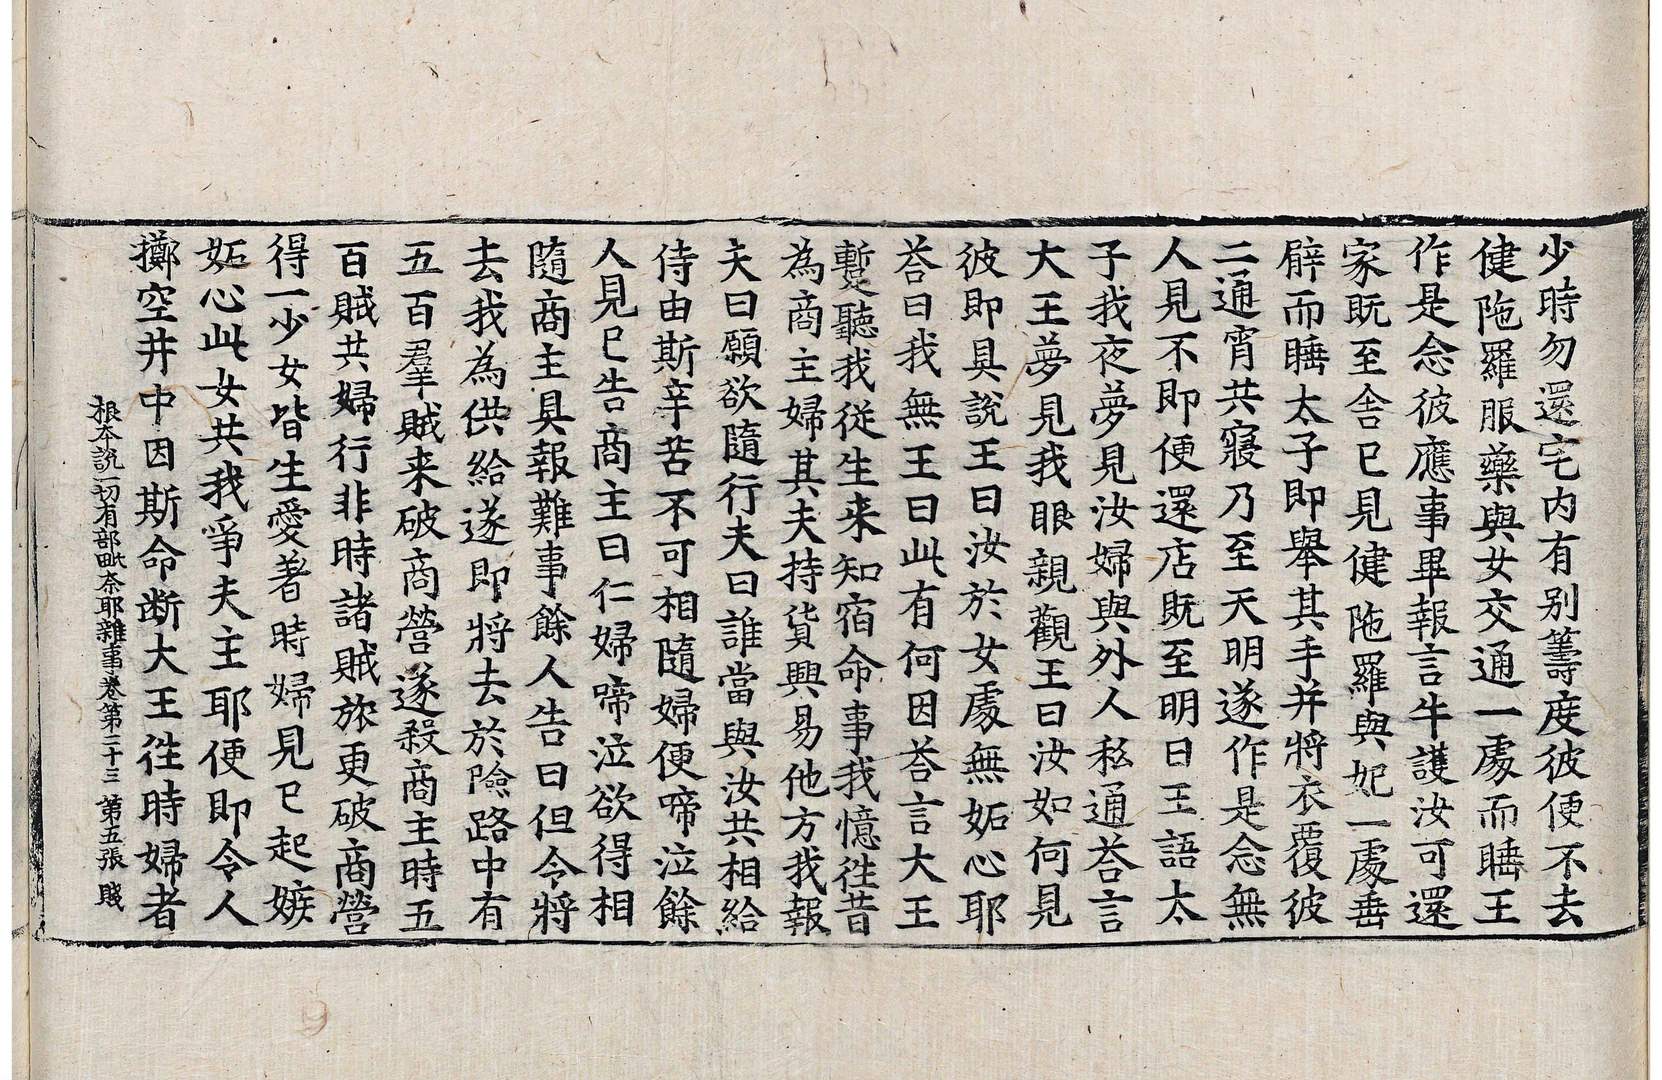 少時勿還宅内有别籌度彼便不去
健陁羅服藥與女交通一處而睡王
作是念彼應事畢報言牛護汝可還
家既至舍已見健陁羅與妃一處垂
臂而睡太子即舉其手并將衣覆彼
二通宵共寢乃至天明遂作是念無
人見不即便還店既至明日王語太
子我夜夢見汝婦與外人私通荅言
大王夢見我眼親觀王曰汝如何見
彼即具說王曰汝於女處無妬心耶
荅曰我無王曰此有何因荅言大王
蹔聽我從生来知宿命事我憶往昔
為商主婦其夫持貨興易他方我報
夫曰願欲隨行夫曰誰當與汝共相給
侍由斯辛苦不可相隨婦便啼泣餘
人見已告商主曰仁婦啼泣欲得相
隨商主具報難事餘人告曰但令將
去我為供給遂即將去於險路中有
五百羣賊来破商營遂殺商主時五
百賊共婦行非時諸賊旅更破商營
得一少女皆生愛著時婦見已起嫉
妬心此女共我爭夫主耶便即令人
擲空井中因斯命断大王往時婦者
根本說一切有部毗奈耶雜事卷第三十三 第五張 賤